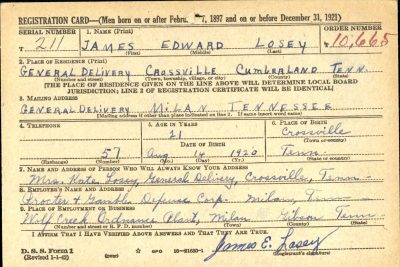 REGISTRATION CARD—(Men born on or after Febru. 17, 1897 and on or before December 31, 1921)
SERIAL NUMBER 1. NAME (Print) ORDER NUMBER
T 211 JAMES EDWARD LOSEY 10,665
(First) (Middle) (Last)
2. PLACE OF RESIDENCE (Print)
GENERAL DELIVERY CROSSVILLE CUMBERLAND TENN.
(Number and street) (Town, township, village, or city) (County) (State)
[THE PLACE OF RESIDENCE GIVEN ON THE LINE ABOVE WILL DETERMINE LOCAL BOARD
JURISDICTION; LINE 2 OF REGISTRATION CERTIFICATE WILL BE IDENTICAL]
3. MAILING ADDRESS
GENERAL DELIVERY MILAN TENNESSEE
[Mailing address if other than place indicated on line 2. If same insert word same]
4. TELEPHONE 5. AGE IN YEARS 6. PLACE OF BIRTH
21 Crossville
DATE OF BIRTH (Town or county)
57 Aug 14 1920 Tenn.
(Exchange) (Number) (Mo.) (Day) (Yr.) (State or country)
7. NAME AND ADDRESS OF PERSON WHO WILL ALWAYS KNOW YOUR ADDRESS
Mrs. Kate Losey, General Delivery, Crossville, Tenn.
8. EMPLOYER'S NAME AND ADDRESS
Procter & Gamble Defense Corp. Milan, Tenn
9. PLACE OF EMPLOYMENT OR BUSINESS
Wolf Creek Ordnance Plant, Milan Gibson Tenn
(Number and street or R. F. D. number) (Town) (County) (State)
I AFFIRM THAT I HAVE VERIFIED ABOVE ANSWERS AND THAT THEY ARE TRUE.
D. S. S. Form 1
(Revised 1-1-42) (over) 16—21630-1
James E. Losey
(Registrant's signature)